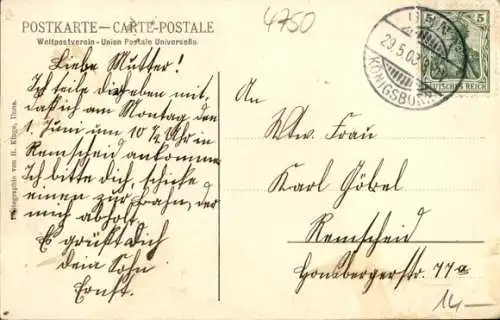 4750
POSTKARTE — CARTE-POSTALE
Weltpostverein - Union Postale Universelle.
5 5
DEUTSCHES REICH
29.5.03
KÖNIGSBORN
Liebe Mutter!
Ich teile dir eben mit,
daß ich am Montag den
1. Juni um 10 ½ Uhr in
Remscheid ankomme
Ich bitte dich, schicke
einen zur Bahn, der
mich abholt.
Es grüßt Dich
dein Sohn
Ernst.
An
Wtw. Frau
Karl Göbel
Remscheid
Hombergerstr. 77a
14.-
Photographie von H. Kluge, Unna.